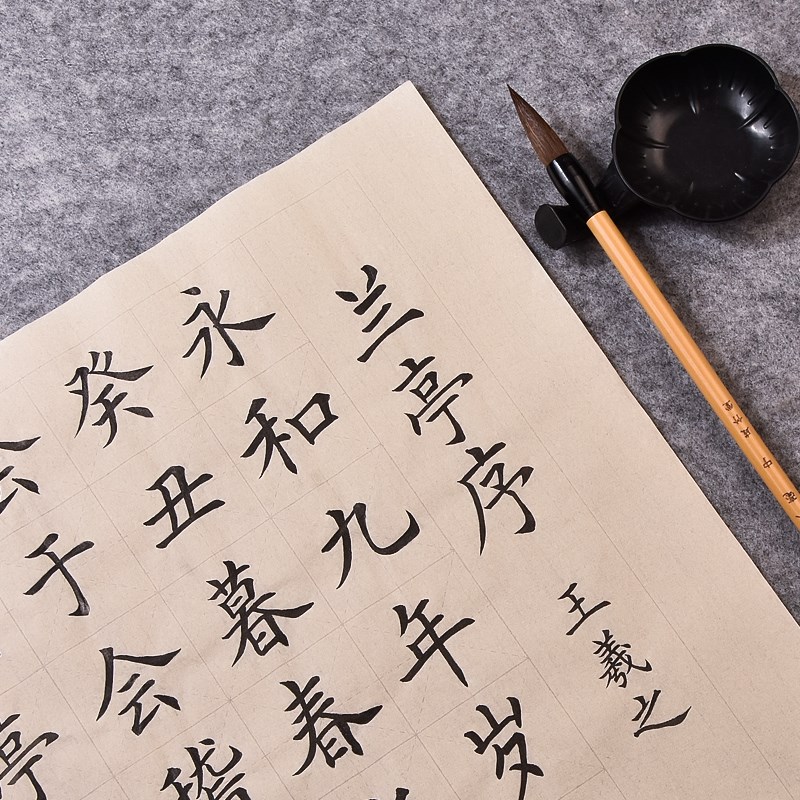 兰亭序
王羲之
永和九年岁
癸丑暮春
会于会稽
亭
中